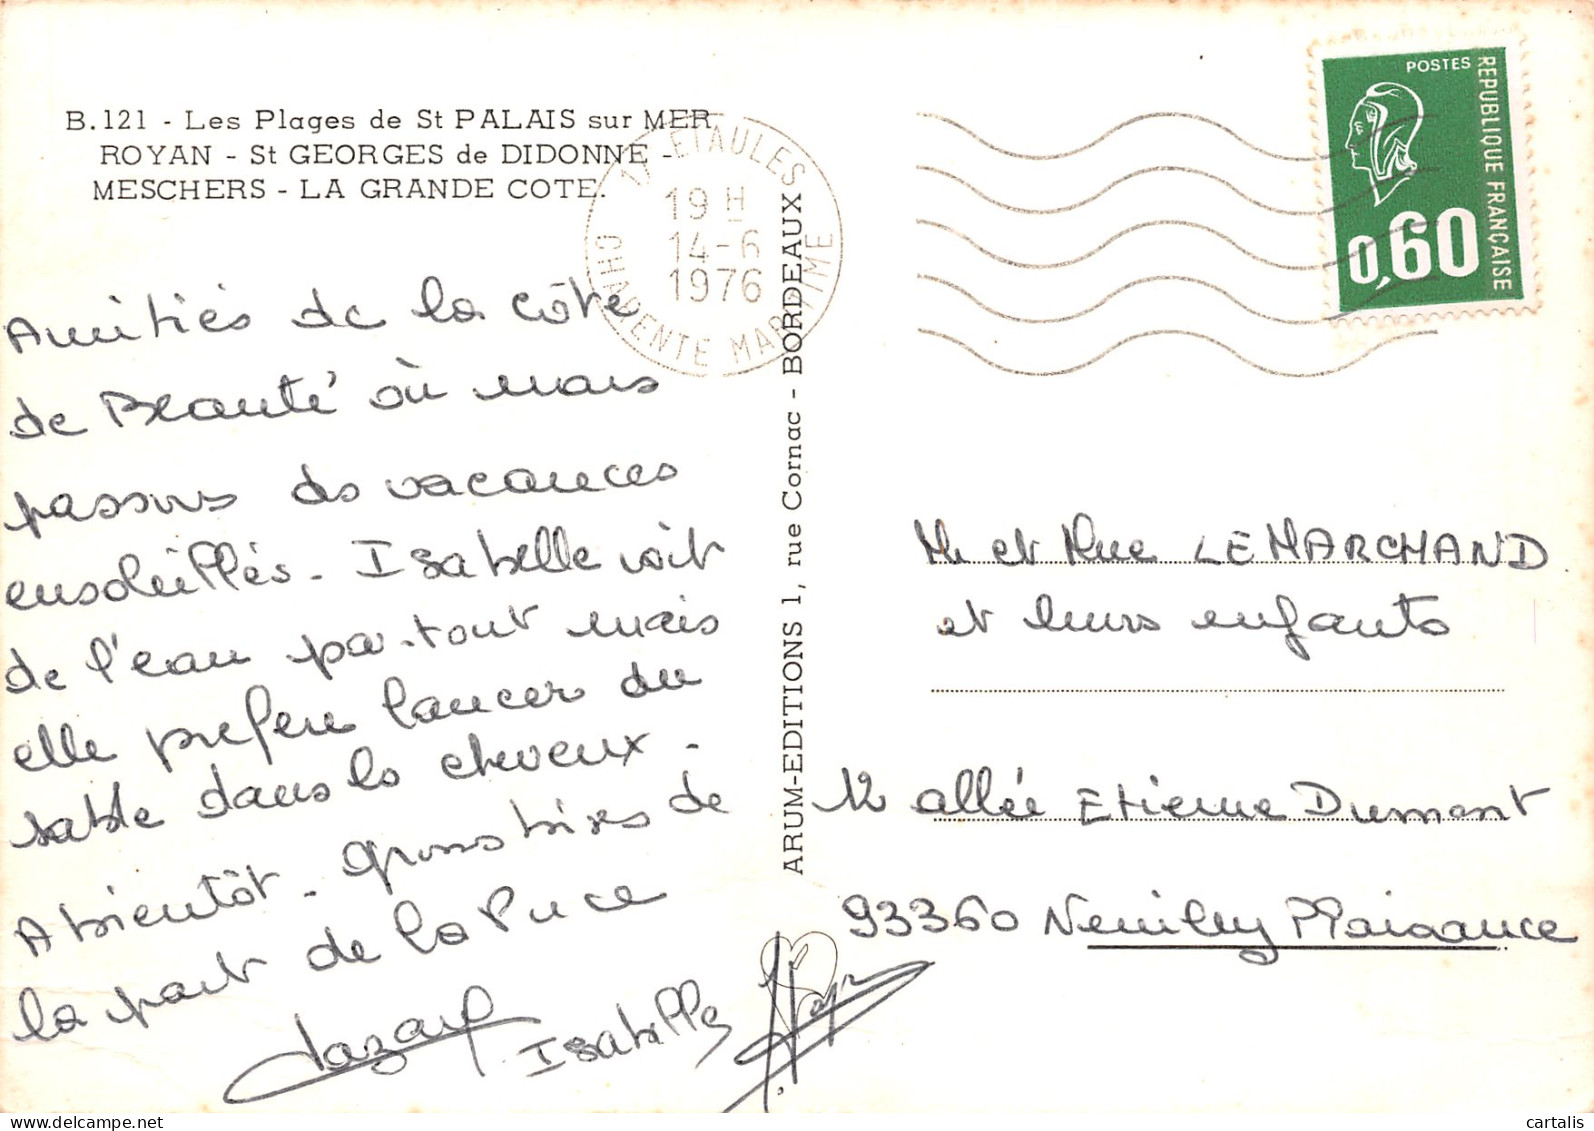 B.121 - Les Plages de St PALAIS sur MER
ROYAN - St GEORGES de DIDONNE -
MESCHERS - LA GRANDE COTE.
17 ETAULES
19 H
14-6
1976
CHARENTE MARITIME
POSTES
REPUBLIQUE FRANÇAISE
0,60
Amitiés de la côte
de Beauté où nous
passons des vacances
ensoleillées - Isabelle voit
de l'eau partout mais
elle préfère lancer du
sable dans les cheveux -
A bientôt - Grosses bises de
la part de la Puce
Isabelle
ARUM-EDITIONS 1, rue Cornac - BORDEAUX
Mr et Mme LEMARCHAND
et leurs enfants
12 allée Etienne Dumont
93360 Neuilly Plaisance
cartalis